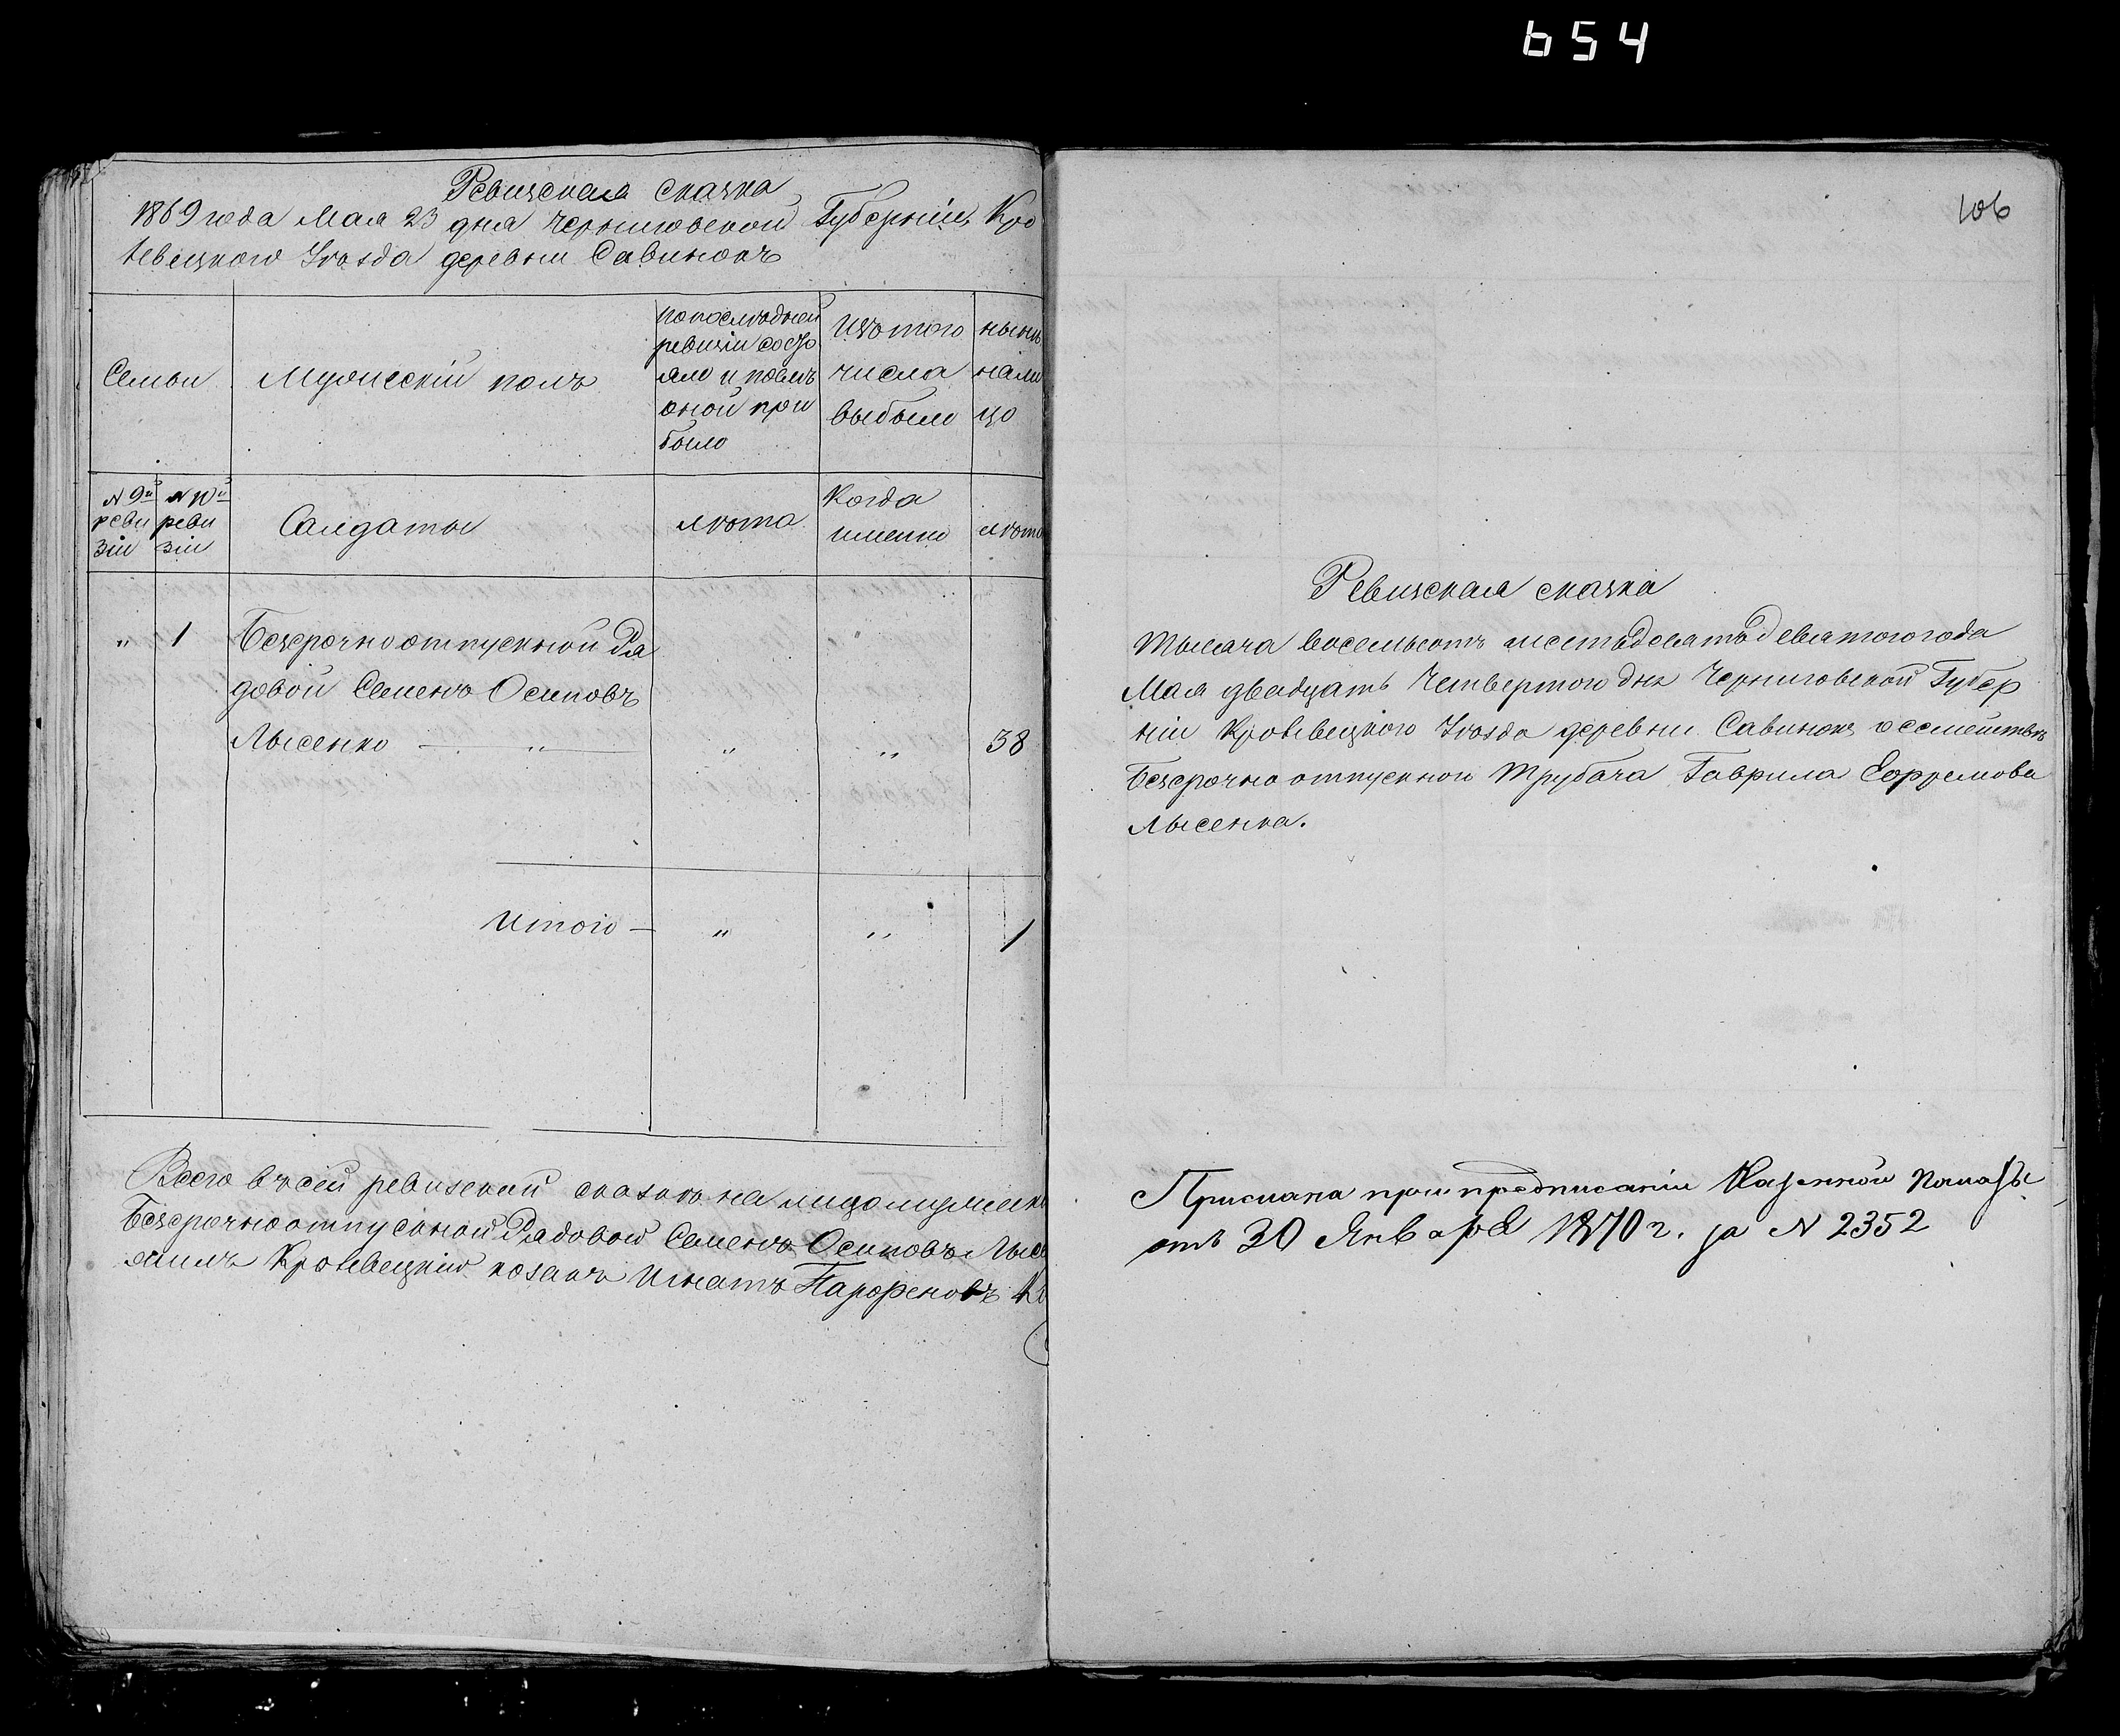 654
Ревизская сказка
1869 года Мая 23 дня Черниговской Губерніи, Кро
левецкого Уѣзда деревни Савинокъ
Семьи
Мужескій полъ
по послѣдней
ревизіи состо
яло и послѣ
оной при
было
Изъ того
числа
выбыло
нынѣ
нали
цо
N 9й
реви
зіи
N 10й
реви
зіи
Салдаты
лѣта
Когда
именно
лѣта
„ 1 Безсрочноотпускной Ря
довой Семенъ Осиповъ
Лысенко — „ — „ „ 38
Итого — „ „ 1
Всего въ сей ревизской сказкѣ на лицо мужеска
Безсрочноотпускной Рядовой Семенъ Осиповъ Лысе
Кролевецкій козакъ Игнатъ Парфеновъ
106
Ревизская сказка
Тысяча восемьсотъ шестьдесятъ девятого года
Мая двадцать Четвертого дня Черниговской Губер
ніи Кролевецкого Уѣзда деревни Савинокъ о семействѣ
Безсрочно отпускного Трубача Гаврила Ефремова
Лысенка.
Прислана при предписаніи Казенной Палаты
отъ 30 Января 1870 г. за N 2352